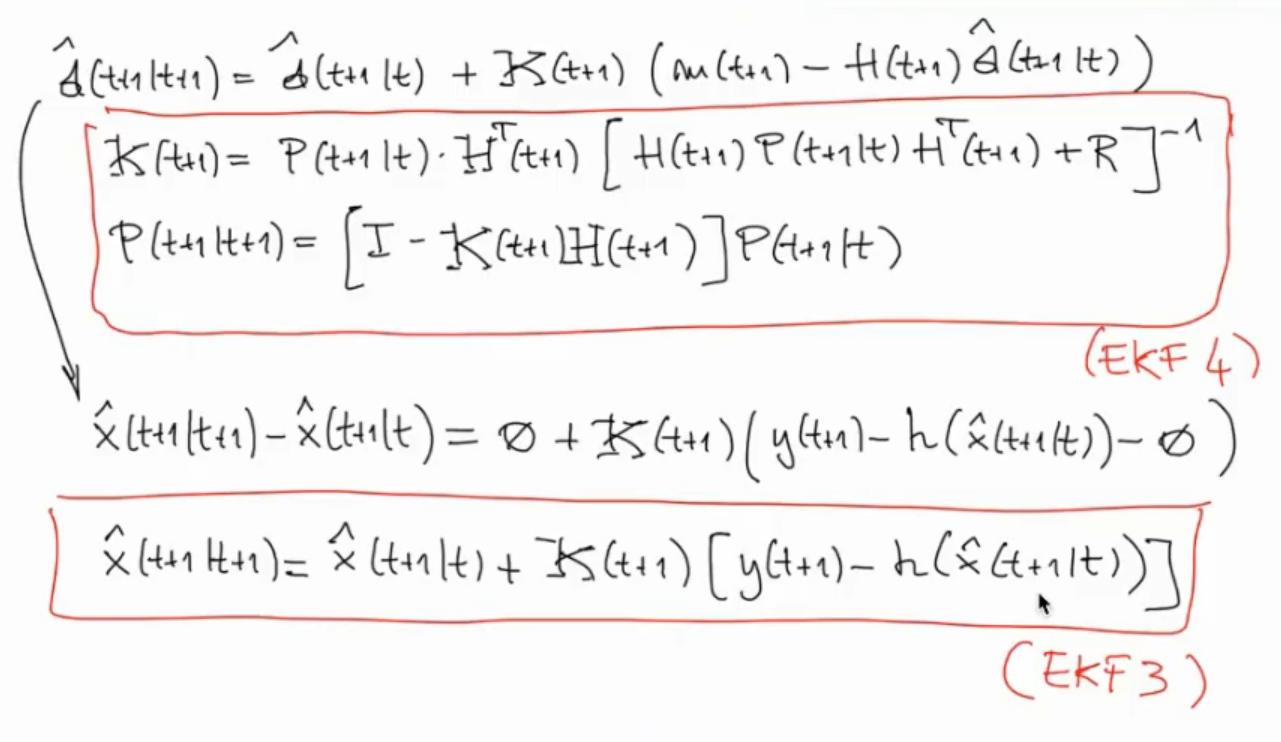 ŝ(t+1|t+1) = ŝ(t+1|t) + K(t+1) (m(t+1) - H(t+1) ŝ(t+1|t))
K(t+1) = P(t+1|t) · Hᵀ(t+1) [H(t+1) P(t+1|t) Hᵀ(t+1) + R]⁻¹
P(t+1|t+1) = [I - K(t+1)H(t+1)] P(t+1|t)
(EKF 4)
x̂(t+1|t+1) - x̂(t+1|t) = ∅ + K(t+1) (y(t+1) - h(x̂(t+1|t)) - ∅)
x̂(t+1|t+1) = x̂(t+1|t) + K(t+1) [y(t+1) - h(x̂(t+1|t))]
(EKF 3)